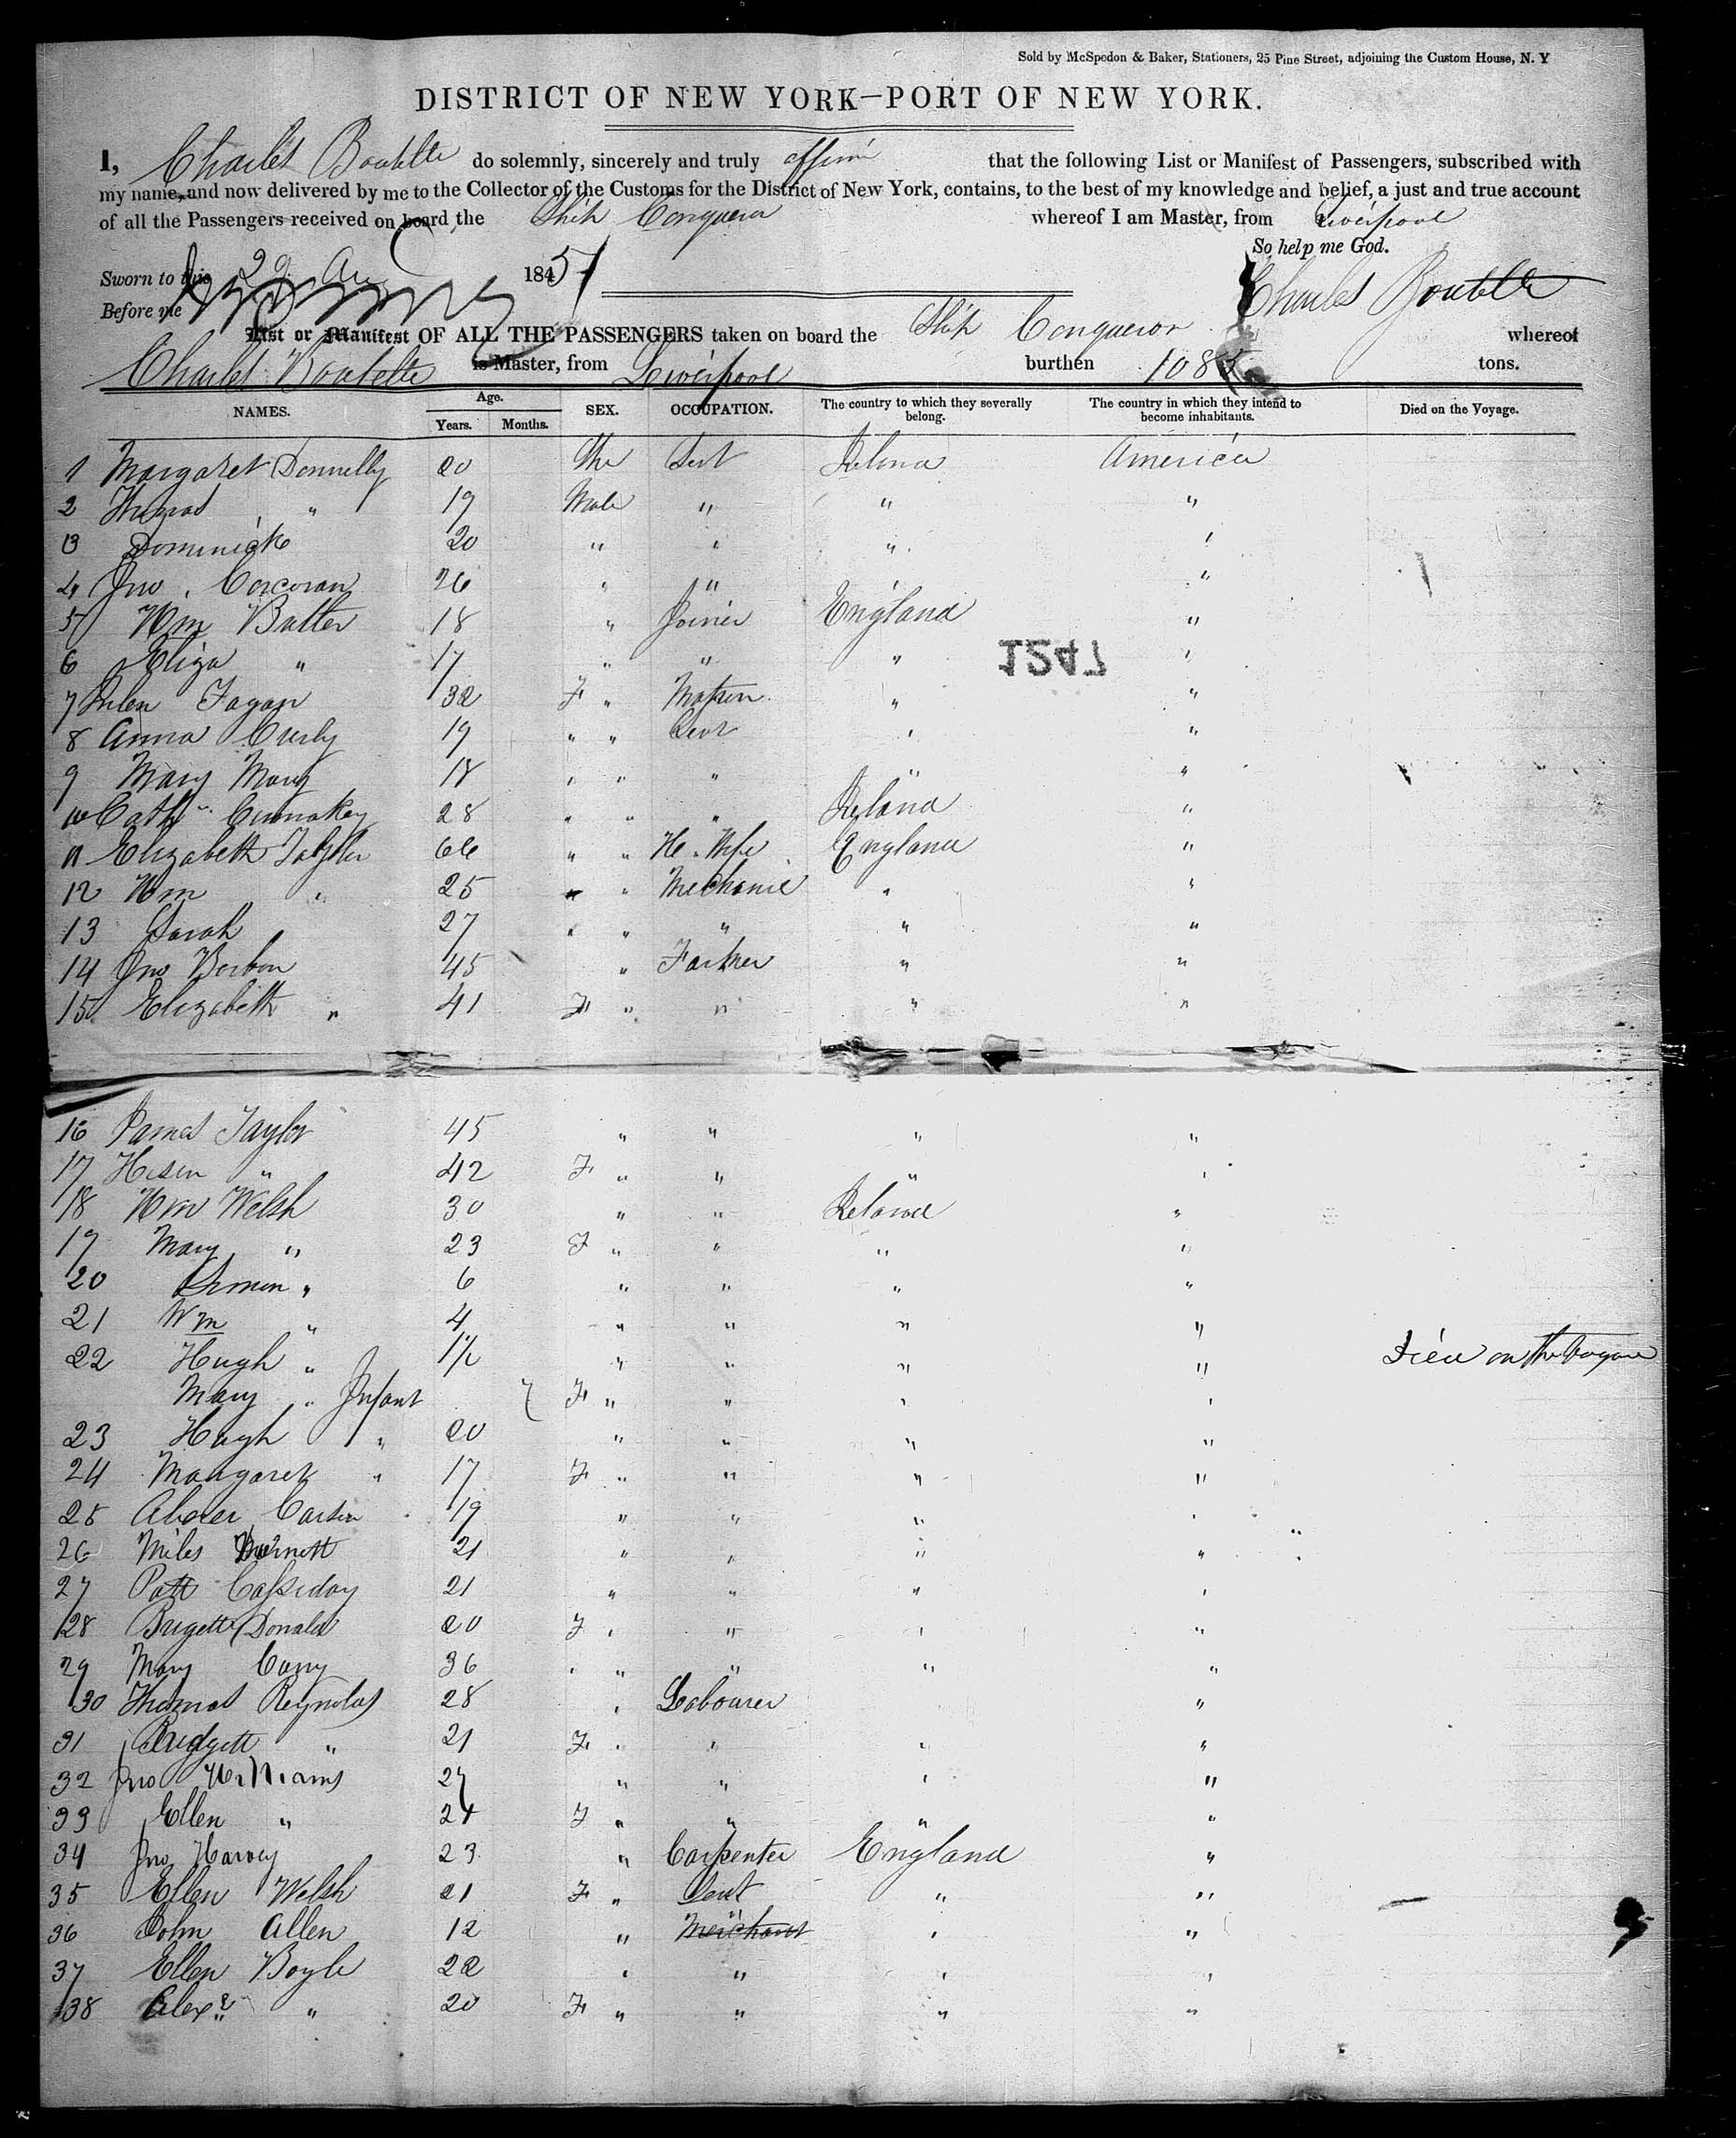 Sold by McSpedon & Baker, Stationers, 25 Pine Street, adjoining the Custom House, N. Y
DISTRICT OF NEW YORK—PORT OF NEW YORK.
I, Charles Boutelle do solemnly, sincerely and truly affirm that the following List or Manifest of Passengers, subscribed with
my name, and now delivered by me to the Collector of the Customs for the District of New York, contains, to the best of my knowledge and belief, a just and true account
of all the Passengers received on board the Ship Conqueror whereof I am Master, from Liverpool
So help me God.
Sworn to this 29 Aug 1851
Charles Boutelle
Before me
List or Manifest OF ALL THE PASSENGERS taken on board the Ship Conqueror whereof
Charles Boutelle is Master, from Liverpool burthen 108 tons.
NAMES. Age. Years. Months. SEX. OCCUPATION. The country to which they severally belong. The country in which they intend to become inhabitants. Died on the Voyage.
1 Margaret Donnelly 20 America
2 Thomas " 19 Male " " "
3 Dominick 20 " " " "
4 Jno. Corcoran 26 " " "
5 Wm 18 " Joiner England "
6 Eliza " 17 " " " "
1247
7 Fagan 32 F " Matron " "
8 Anna 19 " " " "
9 Mary 18 " " " " "
10 Cath 28 " " " Ireland "
11 Elizabeth Taylor 66 " " H. Wife England "
12 Wm " 25 " " Mechanic " "
13 Sarah 27 " " " " "
14 Jno 45 " Farmer " "
15 Elizabeth " 41 F " " " "
16 James Taylor 45 " " " "
17 " 42 F " " " "
18 Wm Welsh 30 " " Ireland "
19 Mary " 23 F " " " "
20 Simon " 6 " " " "
21 Wm " 4 " " " "
22 Hugh " " " " " Died on the Voyage
Mary " Infant F " " " "
23 Hugh " 20 " " " "
24 Margaret " 17 F " " " "
25 19 " " " "
26 Miles 21 " " " "
27 Patt Cassiday 21 " " " "
28 Brigett Donald 20 F " " " "
29 Mary 36 " " " " "
30 Thomas Reynolds 28 " Labourer "
31 Bridgett " 21 F " " " "
32 Jno Williams 27 " " " "
33 Ellen " 24 F " " " "
34 Jno Harvey 23 " Carpenter England "
35 Ellen Welsh 21 F " " "
36 John Allen 12 " Merchant " "
37 Ellen Boyle 22 " " " "
38 Alexr " 20 F " " " "